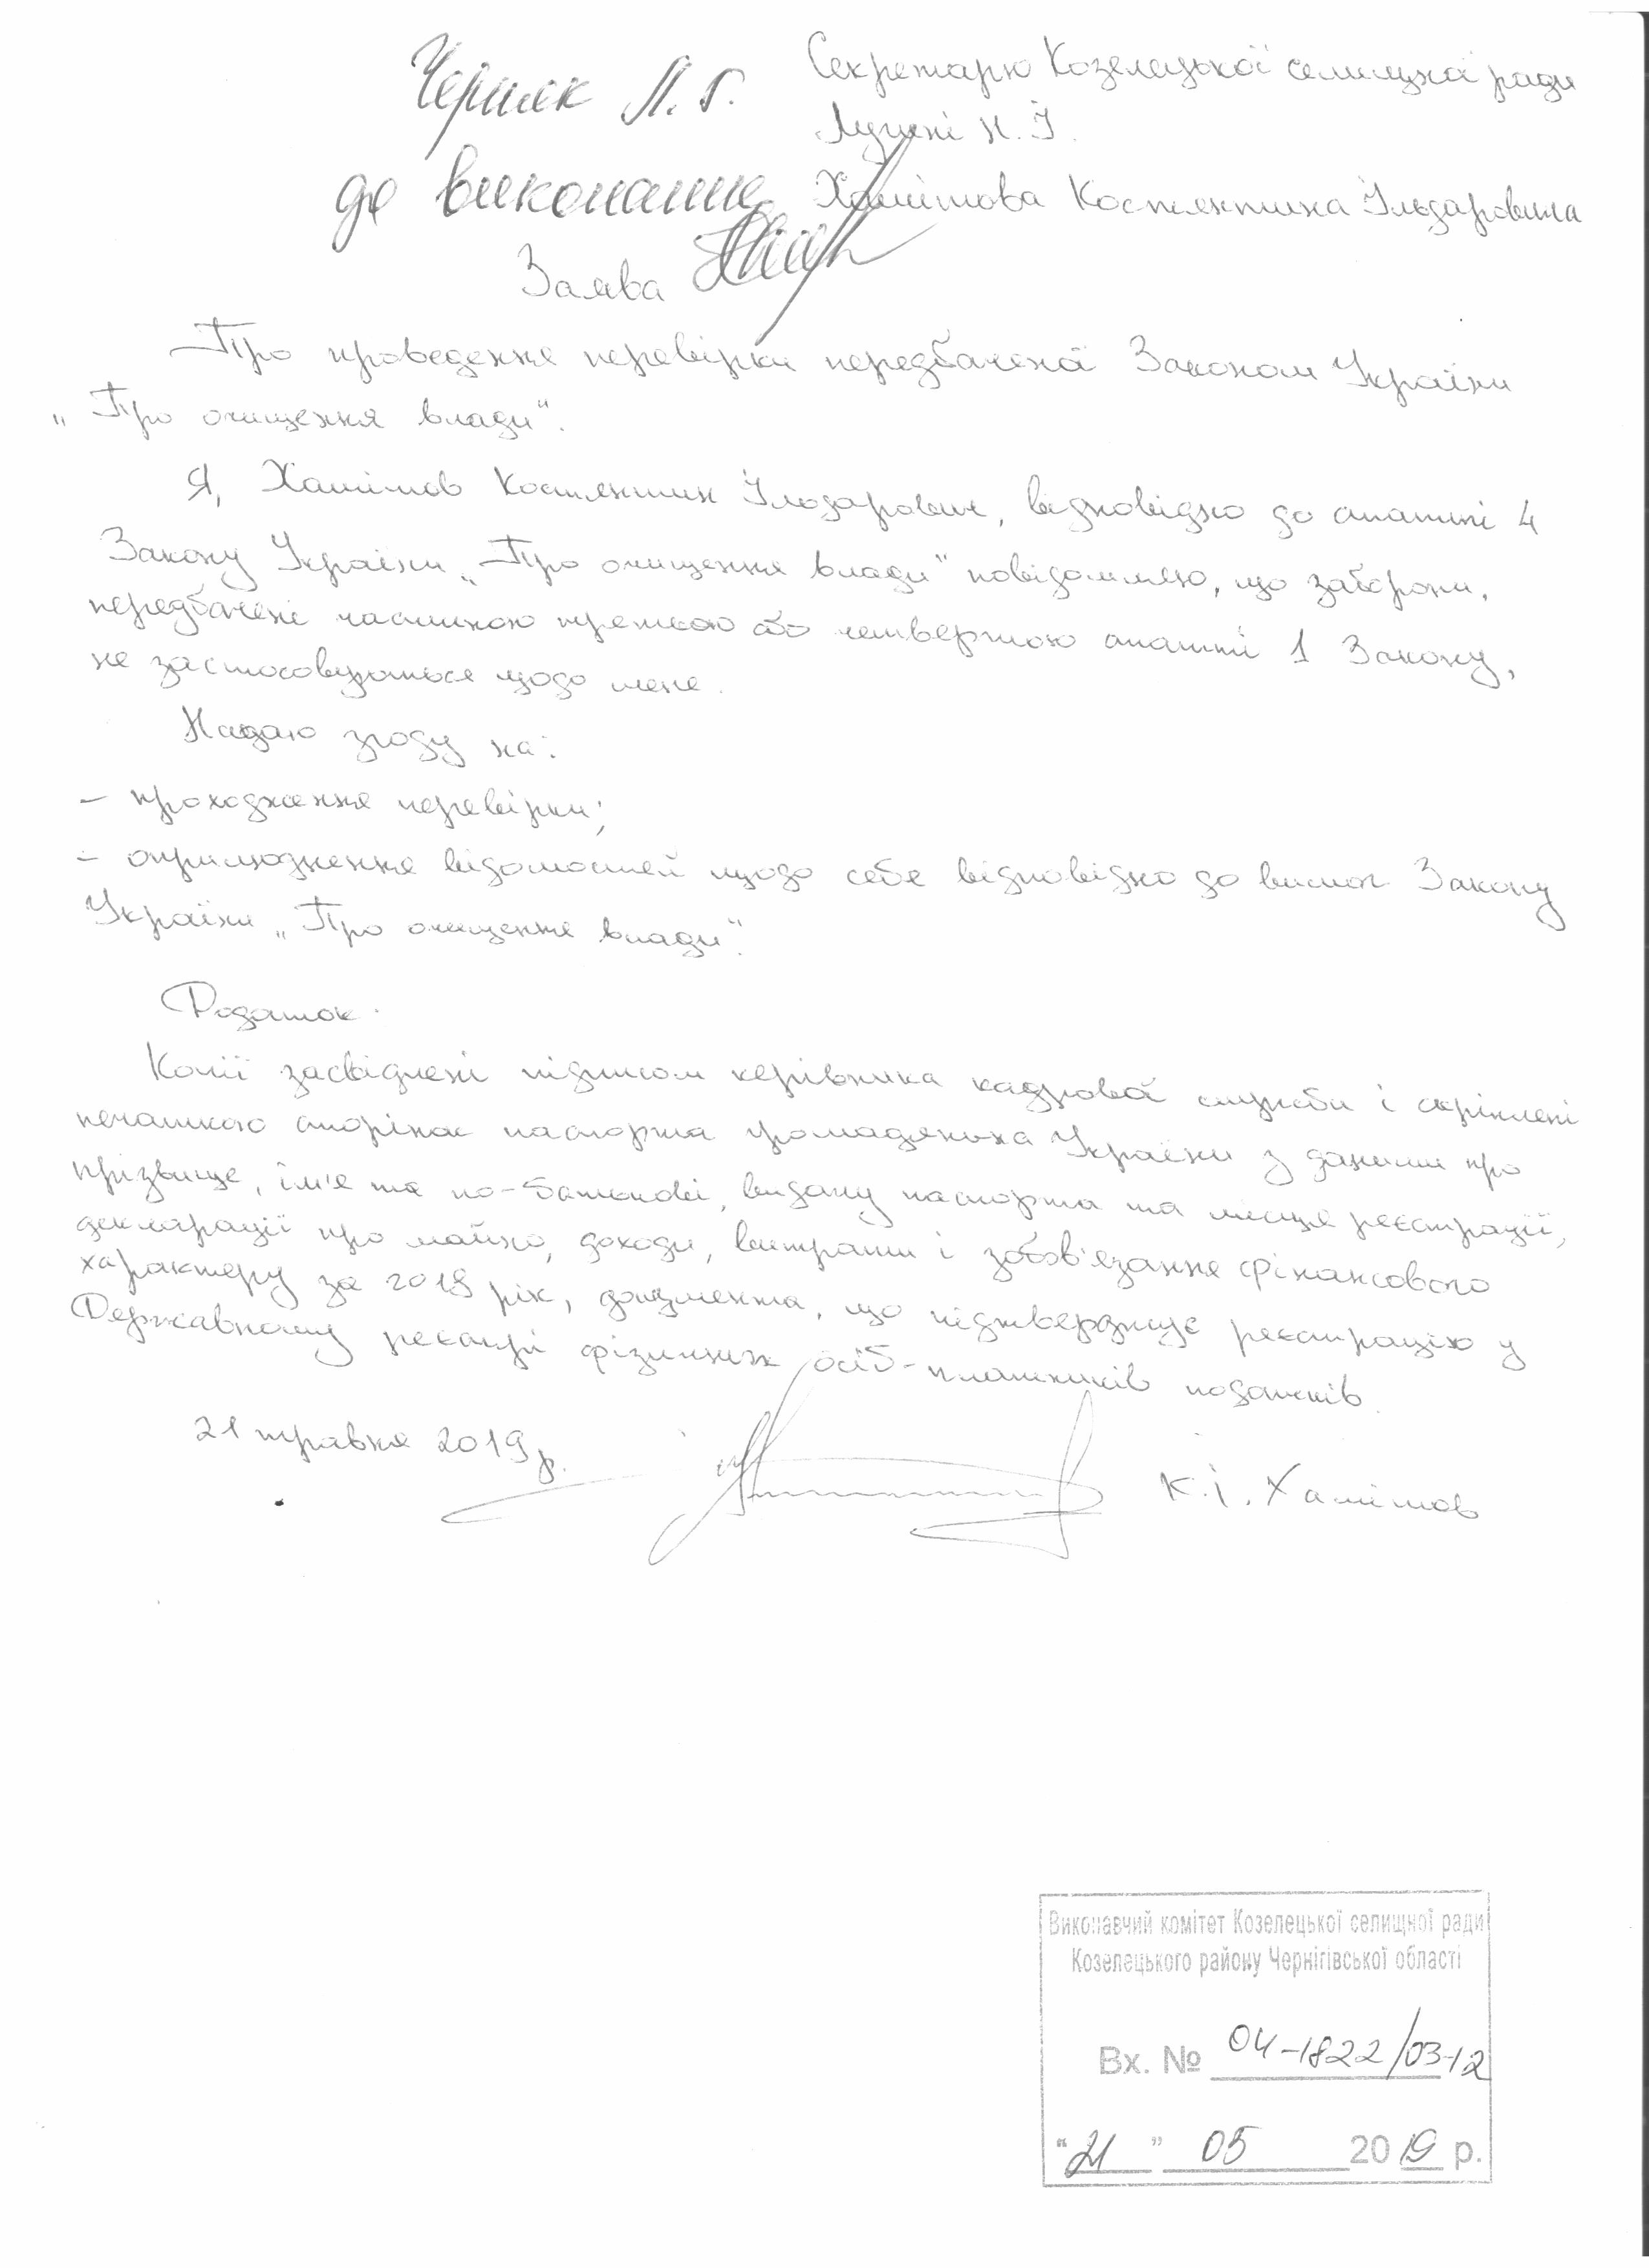 Черняк Л. Г.
до виконання
Секретарю Козелецької селищної ради
Лупені Н. І.
Хамітова Костянтина Ільдаровича
Заява
Про проведення перевірки передбаченої Законом України
„Про очищення влади".
Я, Хамітов Костянтин Ільдарович, відповідно до статті 4
Закону України „Про очищення влади" повідомляю, що заборони,
передбачені частиною третьою або четвертою статті 1 Закону,
не застосовуються щодо мене.
Надаю згоду на:
– проходження перевірки;
– оприлюднення відомостей щодо себе відповідно до вимог Закону
України „Про очищення влади".
Додаток.
Копії засвідчені підписом керівника кадрової служби і скріплені
печаткою сторінок паспорта громадянина України з даними про
прізвище, ім'я та по-батькові, видачу паспорта та місце реєстрації,
декларації про майно, доходи, витрати і зобов'язання фінансового
характеру за 2018 рік, документа, що підтверджує реєстрацію у
Державному реєстрі фізичних осіб-платників податків.
21 травня 2019 р.
К.І. Хамітов
Виконавчий комітет Козелецької селищної ради
Козелецького району Чернігівської області
Вх. № 04-1822/03-12
"21" 05 2019 р.